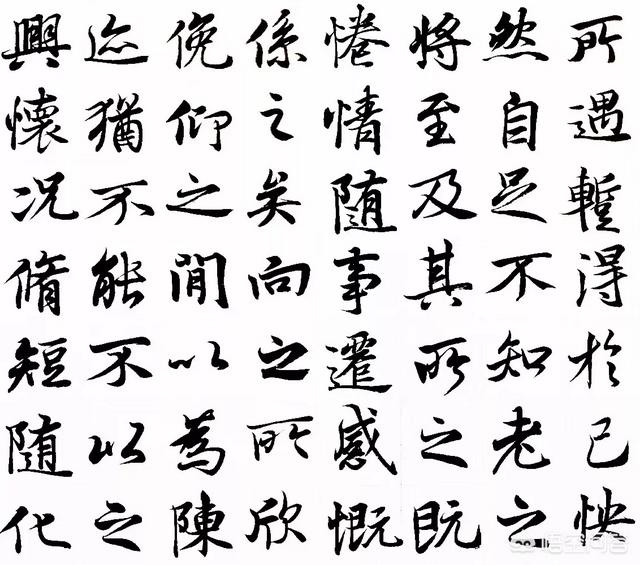 所遇蹔得於己怏
然自足不知老之
將至及其所之既
惓情随事遷感慨
係之矣向之所欣
俛仰之閒以為陳
迹猶不能不以之
興懷况脩短随化
悟空问答